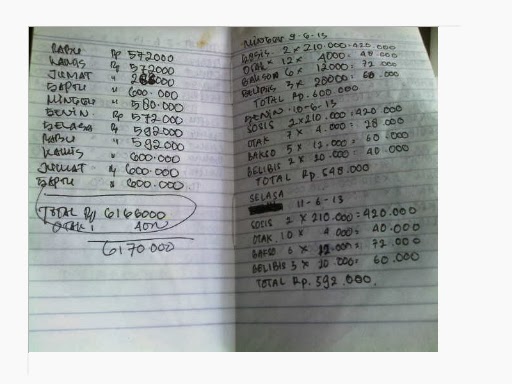 RABU Rp 572000
KAMIS Rp 572000
JUMAT " 000
SAPTU " 600.000
MINGGU " 580.000
SENIN Rp 572000
SELASA " 592.000
RABU " 592.000
KAMIS " 600.000
JUMAT " 600.000
SAPTU " 600.000
TOTAL Rp 6166000
OTAK 1 4000
6170.000
MINGGU 9-6-13
SOSIS 2 x 210.000 = 420.000
OTAK 12 x 4000 = 48.000
BAKSO 6 x 12000 = 72 000
BELIBIS 3 x 20000 = 60.000
TOTAL Rp. 600 000
SENIN 10-6-13
SOSIS 2 x 210.000 = 420 000
OTAK 7 x 4.000 = 28 000
BAKSO 5 x 12.000 = 60.000
BELIBIS 2 x 20.000 = 40.000
TOTAL Rp 548.000
SELASA
11-6-13
SOSIS 2 x 210.000 = 420.000
OTAK 10 x 4000 = 40.000
BAKSO 6 x 12.000 = 72.000
BELIBIS 3 x 20.000 = 60.000
TOTAL Rp. 592.000.